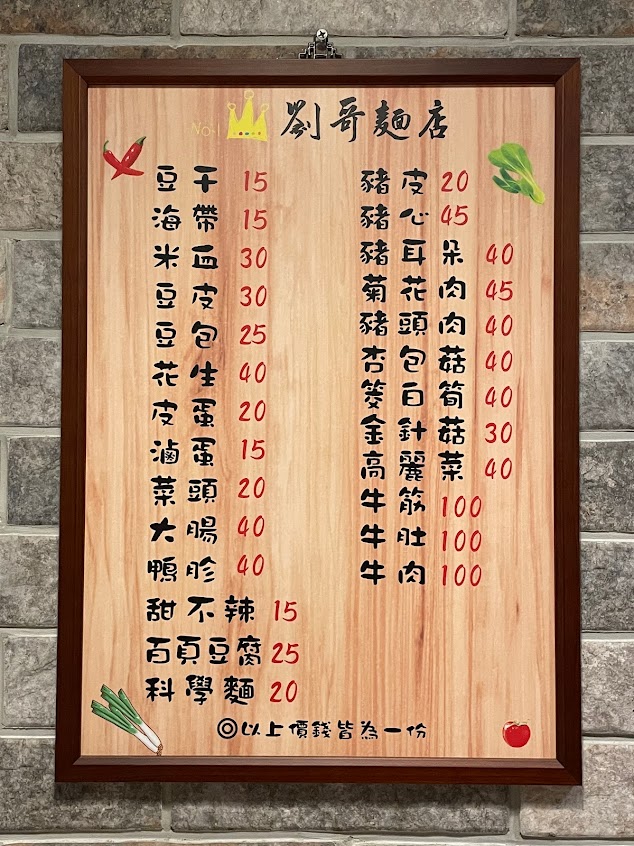 No.1 劉哥麵店
豆干 15
海帶 15
米血 30
豆皮 30
豆包 25
花生 40
皮蛋 20
滷蛋 15
菜頭 20
大腸 40
鴨胗 40
甜不辣 15
百頁豆腐 25
科學麵 20
豬皮 20
豬心 45
豬耳朵 40
菊花肉 45
豬頭肉 40
杏包菇 40
筊白筍 40
金針菇 30
高麗菜 40
牛筋 100
牛肚 100
牛肉 100
◎以上價錢皆為一份